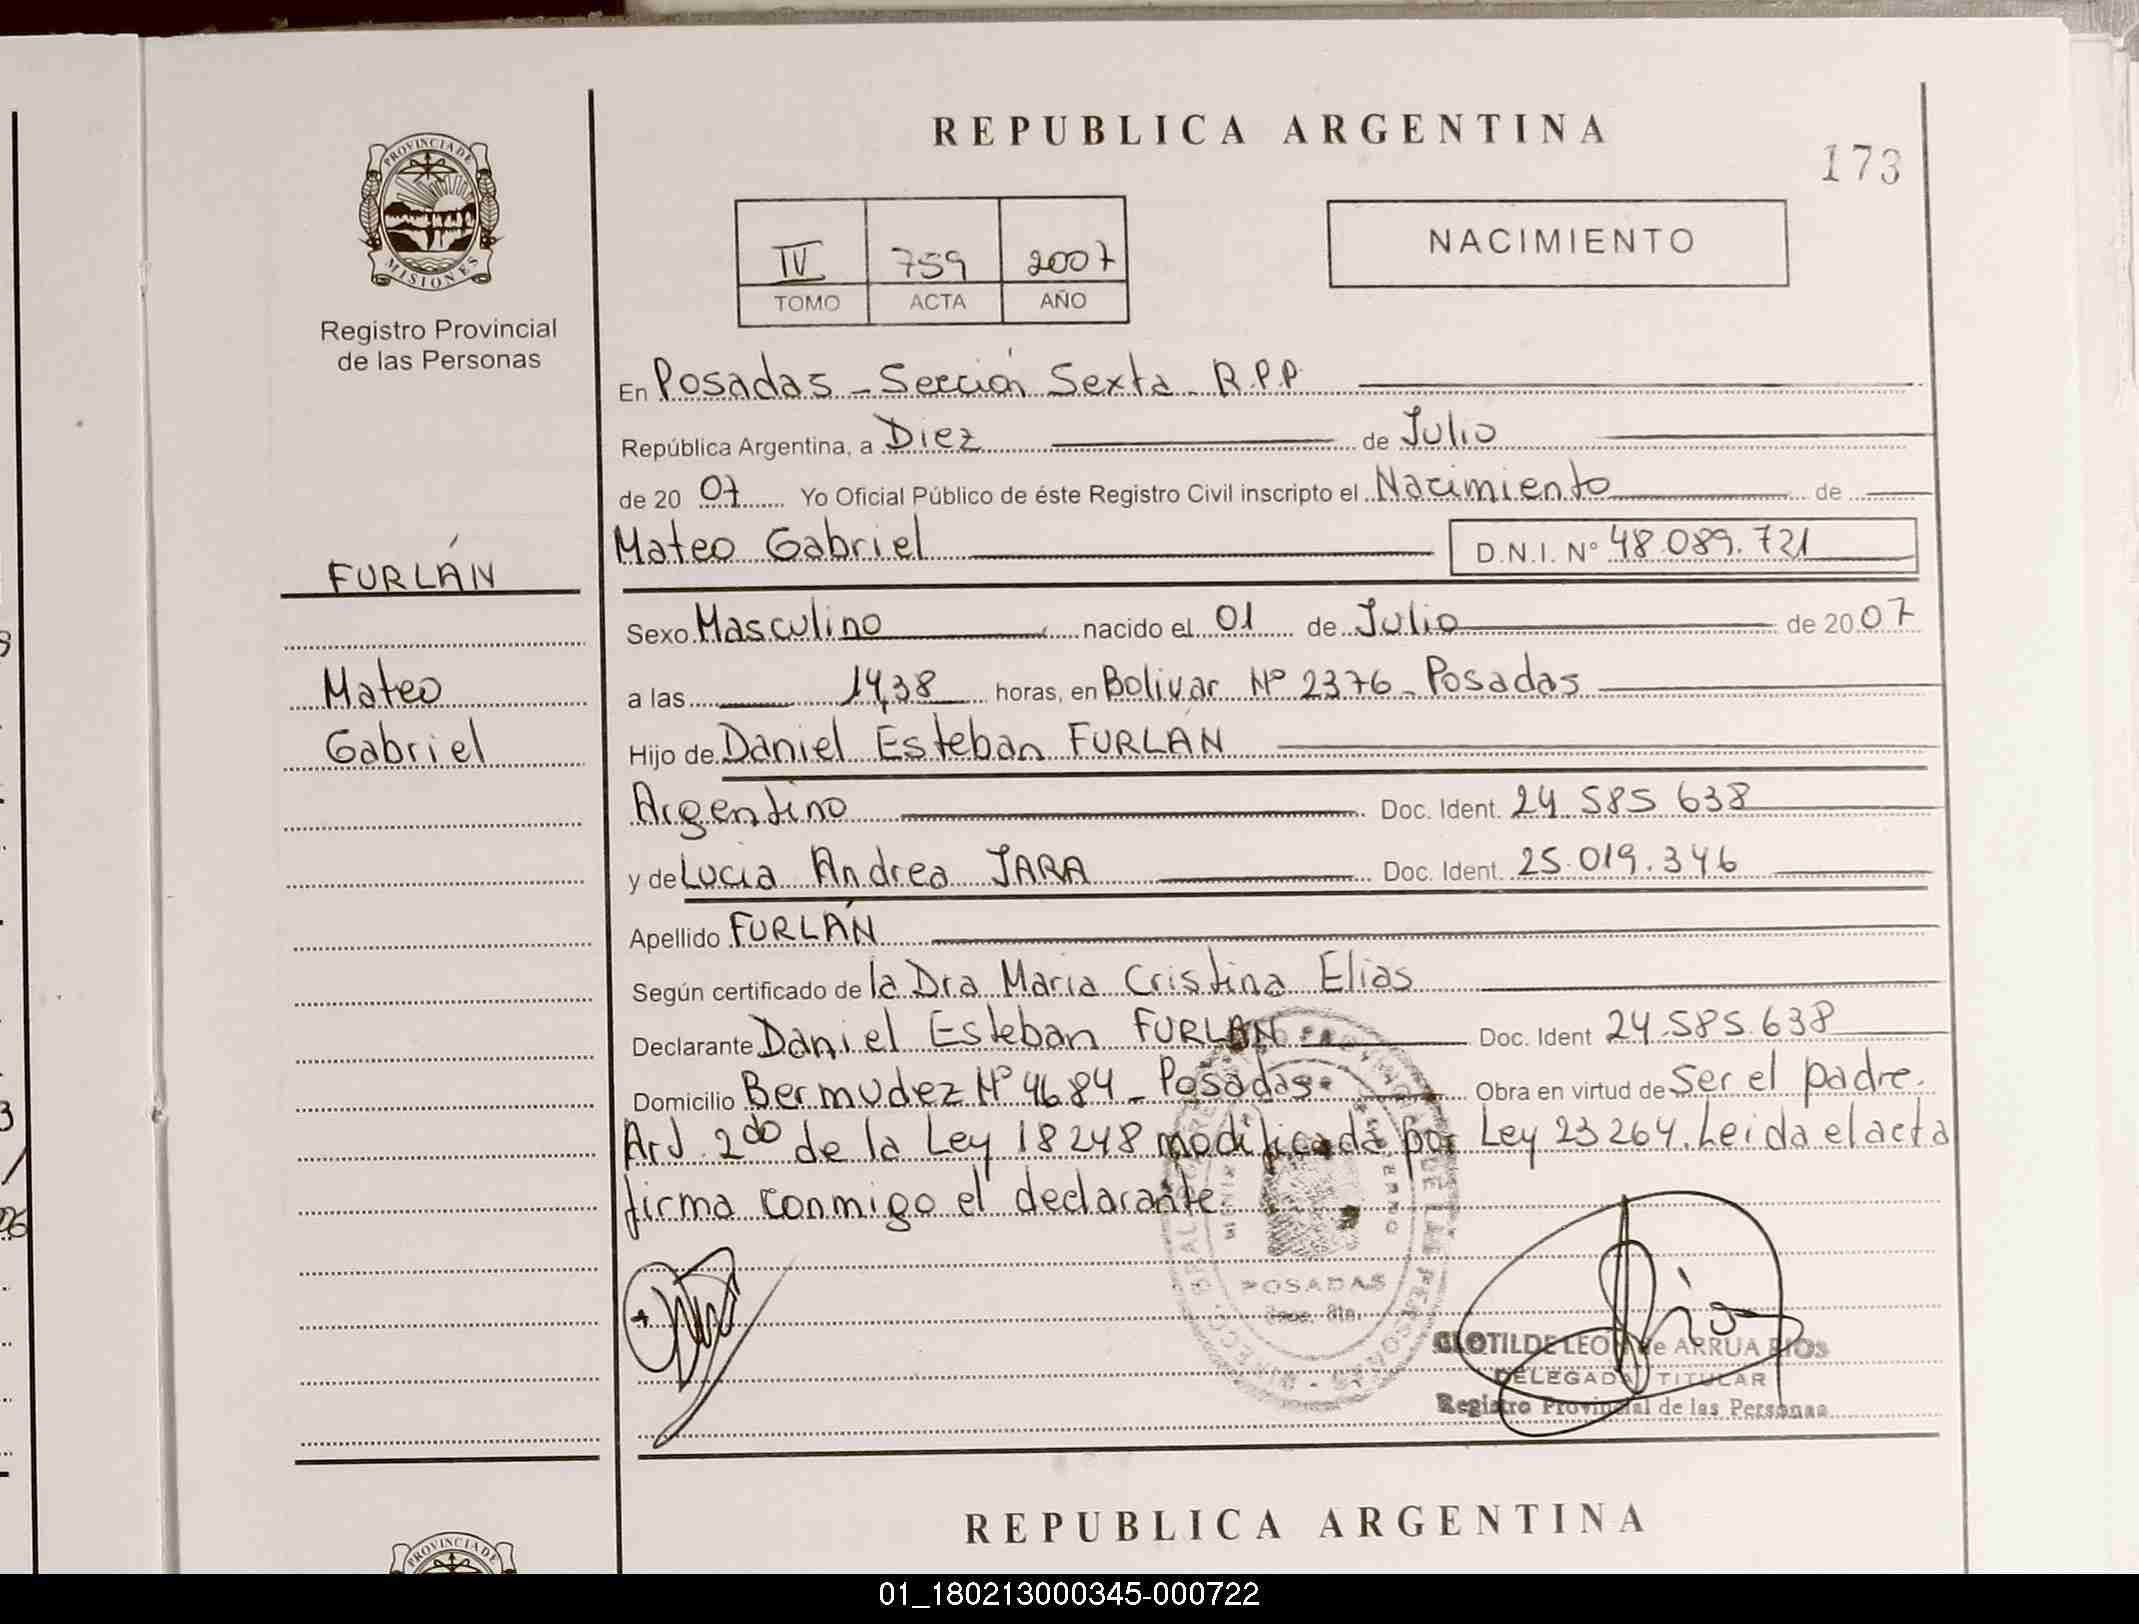 REPUBLICA ARGENTINA
173
PROVINCIA DE
MISIONES
Registro Provincial
de las Personas
IV 759 2007
TOMO ACTA AÑO
NACIMIENTO
En Posadas - Sección Sexta - R.P.P.
República Argentina, a Diez de Julio
de 2007 Yo Oficial Público de éste Registro Civil inscripto el Nacimiento de
Mateo Gabriel D.N.I. Nº 48.089.721
FURLÁN
Mateo
Gabriel
Sexo Masculino nacido el 01 de Julio de 2007
a las 14,38 horas, en Bolivar Nº 2376 - Posadas
Hijo de Daniel Esteban FURLÁN
Argentino Doc. Ident. 24.585.638
y de Lucia Andrea JARA Doc. Ident. 25.019.346
Apellido FURLÁN
Según certificado de la Dra Maria Cristina Elias
Declarante Daniel Esteban FURLAN Doc. Ident 24.585.638
Domicilio Bermudez Nº 4684 - Posadas Obra en virtud de Ser el padre.
Art. 2do de la Ley 18248 modificada por Ley 23264. Leida el acta
firma conmigo el declarante.
POSADAS
CLOTILDE LEON de ARRUA RIOS
DELEGADA TITULAR
Registro Provincial de las Personas
REPUBLICA ARGENTINA
PROVINCIA DE
01_180213000345-000722